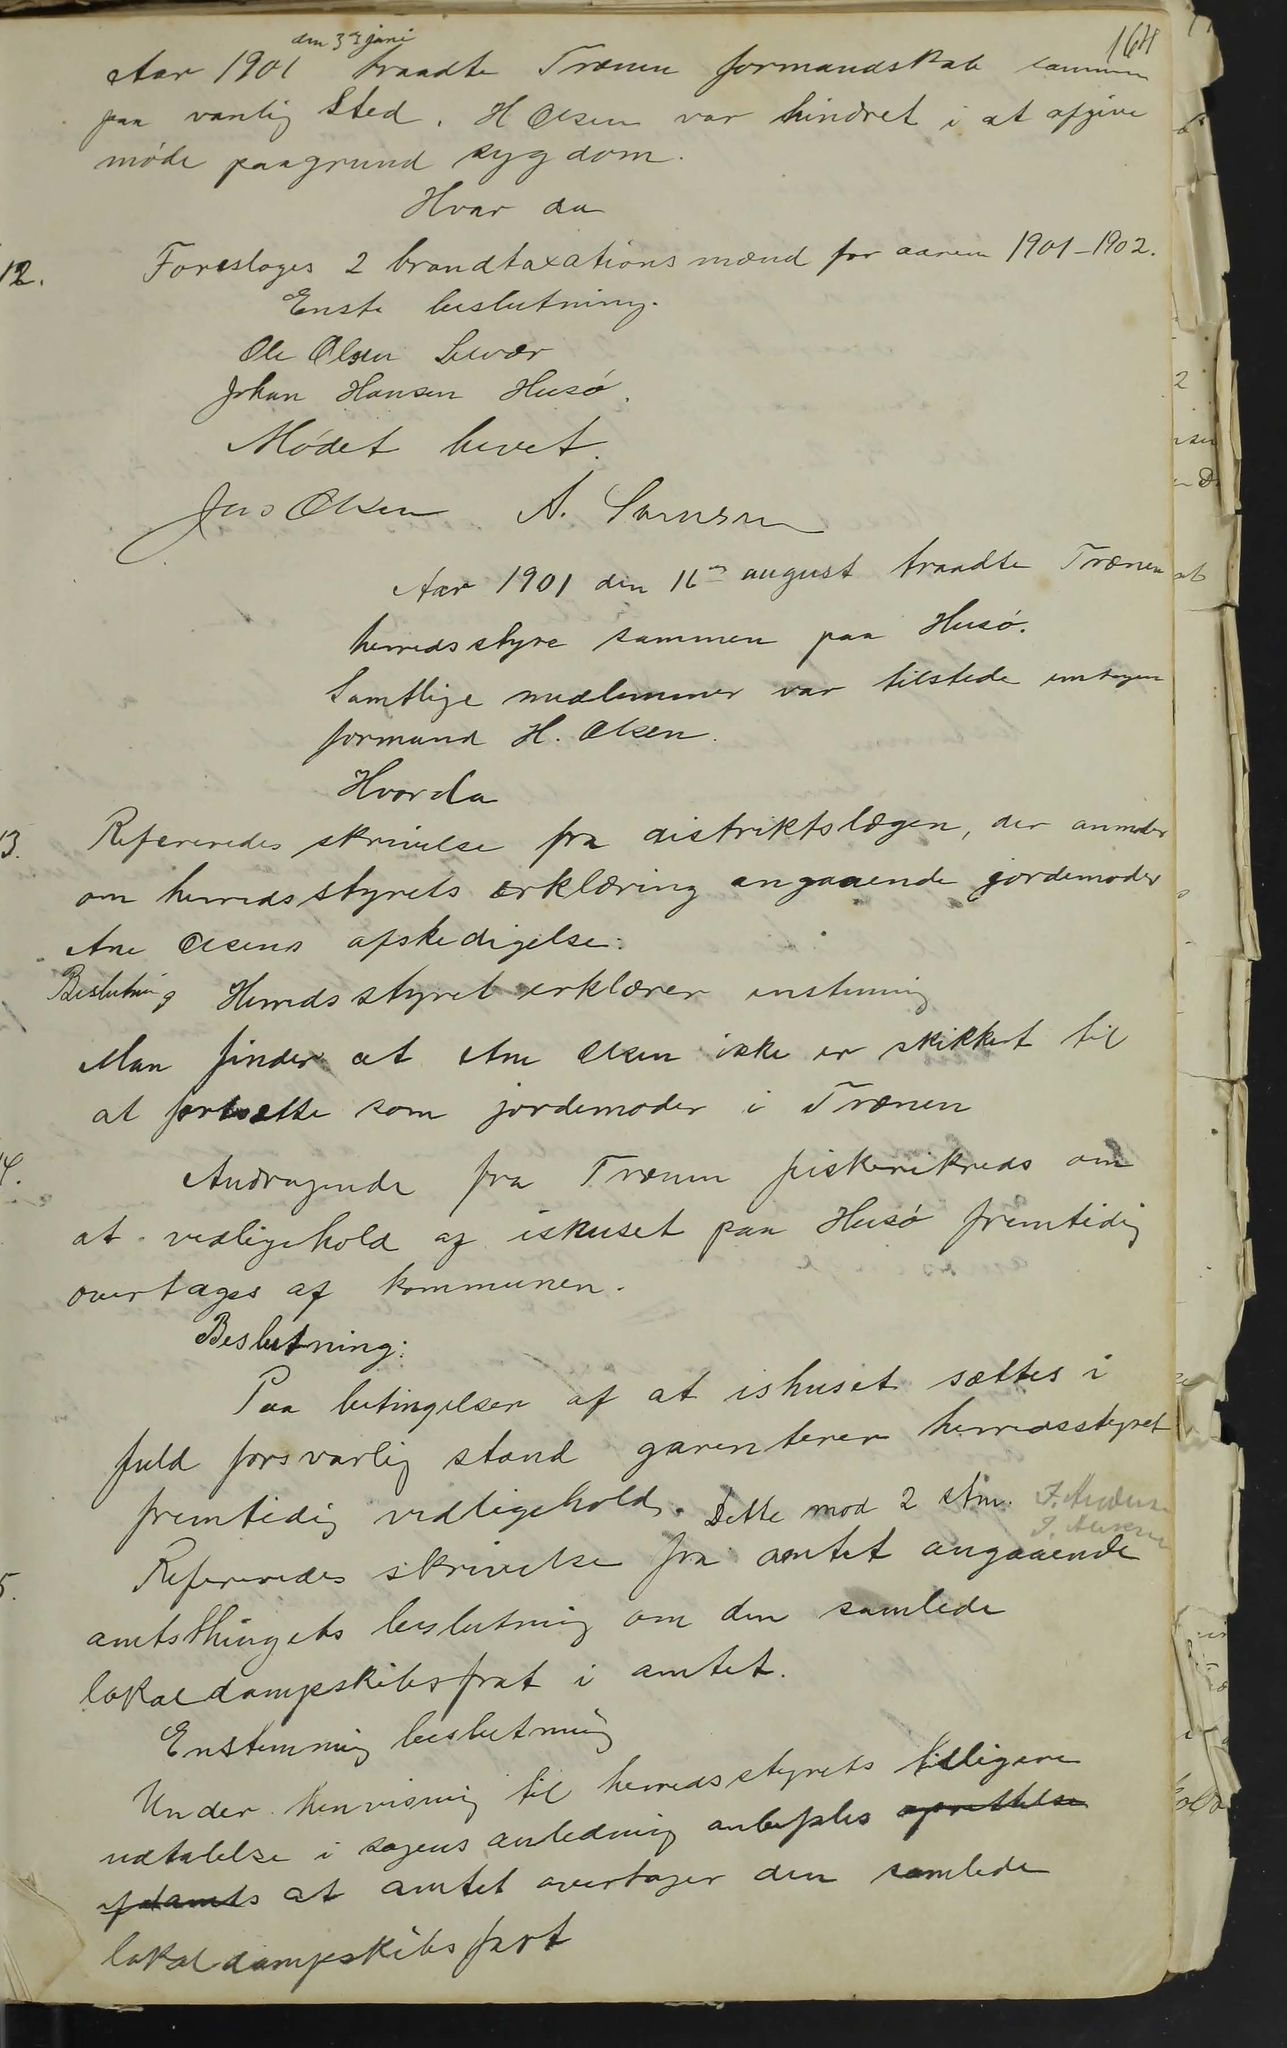 164
den 3die juni
Aar 1901 traadte Trænen formandskab sammen
paa vanlig Sted. H Olsen var hindret i at afgive
møde paagrund sygdom.
Hvor da
12. Foresloges 2 brandtaxationsmænd for aarene 1901-1902.
Enste beslutning.
Ole Olsen Selvær
Johan Hansen Husø.
Mødet hevet.
Jens Olsen A. Sørensen
Aar 1901 den 16de august traadte Trænen
herredsstyre sammen paa Husø.
Samtlige medlemmer var tilstede undtagen
formand H. Olsen.
Hvorda
13. Refereredes skrivelse fra distriktslægen, der anmoder
om herredsstyrets erklæring angaaende jordemoder
Ane Olsens afskedigelse.
Beslutning Herredsstyret erklærer enstemmig
Man finder at Ane Olsen ikke er skikket til
at fortsætte som jordemoder i Trænen
14. Andragende fra Trænen fiskerikreds om
at vedligehold af ishuset paa Husø fremtidig
overtages af kommunen.
Beslutning:
Paa betingelsen af at ishuset sættes i
fuld forsvarlig stand garenterer herredsstyret
fremtidig vedligehold. Dette mod 2 stm.
5. Refereredes skrivelse fra amtet angaaende
amtsthingets beslutning om den samlede
lokaldampskibsfrat i amtet.
Enstemmig beslutning
Under henvisning til herredsstyrets tidligere
udtalelse i sagens anledning anbefales oprettelse
af at amtet overtager den samlede
lokaldampskibsfart